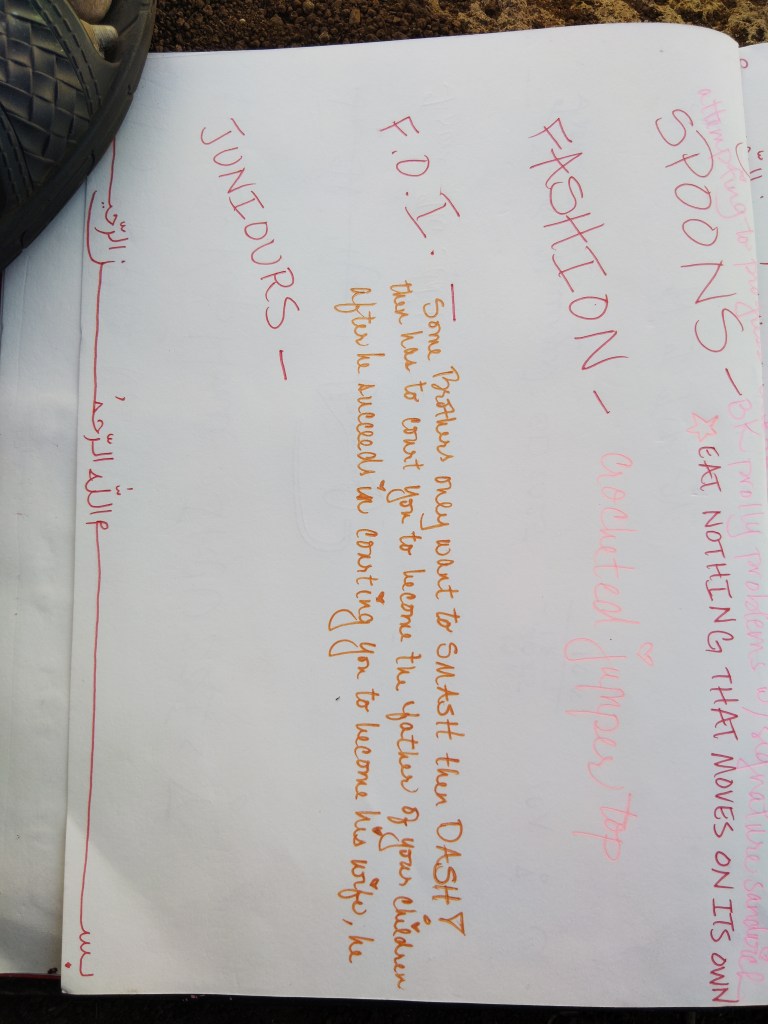 attempting to
SPOONS - BK problems w/ signature
☆ EAT NOTHING THAT MOVES ON ITS OWN
FASHION - crocheted jumper top
F.O.I. - Some Brothers only want to SMASH then DASH!
then has to court you to become the father of your children
after he succeeds in courting you to become his wife, he
JUNIOURS -
بسم اللّه الرّحمن الرّحيم